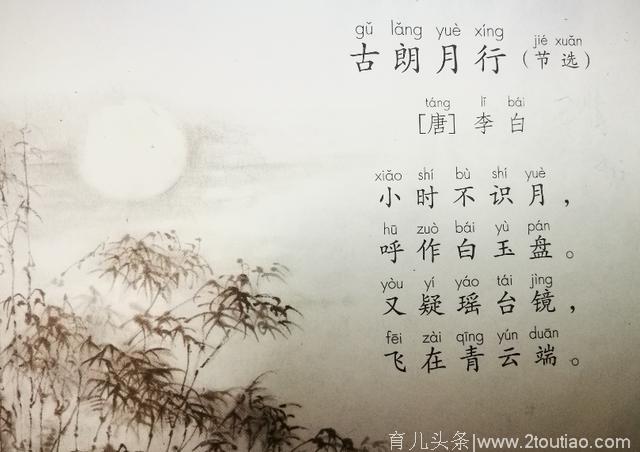 gǔ lǎng yuè xíng jié xuǎn
古朗月行（节选）
táng lǐ bái
[唐] 李白
xiǎo shí bù shí yuè
小时不识月，
hū zuò bái yù pán
呼作白玉盘。
yòu yí yáo tái jìng
又疑瑶台镜，
fēi zài qīng yún duān
飞在青云端。
育儿头条|www.2toutiao.com